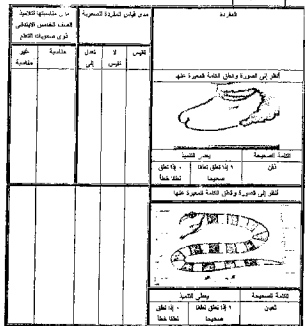 المفردة
مدى قياس المفردة للصعوبة
مدى مناسبتها لتلاميذ الصف الخامس الابتدائى ذوى صعوبات التعلم
تقيس
لا تقيس
تعدل إلى
مناسبة
غير مناسبة
أنظر إلى الصورة وانطق الكلمة المعبرة عنها
الكلمة الصحيحة
يعطى التلميذ
١ إذا نطق نطقا صحيحا
٠ إذا نطق نطقا خطأ
أنظر إلى الصورة وانطق الكلمة المعبرة عنها
الكلمة الصحيحة
يعطى التلميذ
ثعبان
١ إذا نطق نطقا صحيحا
٠ إذا نطق نطقا خطأ